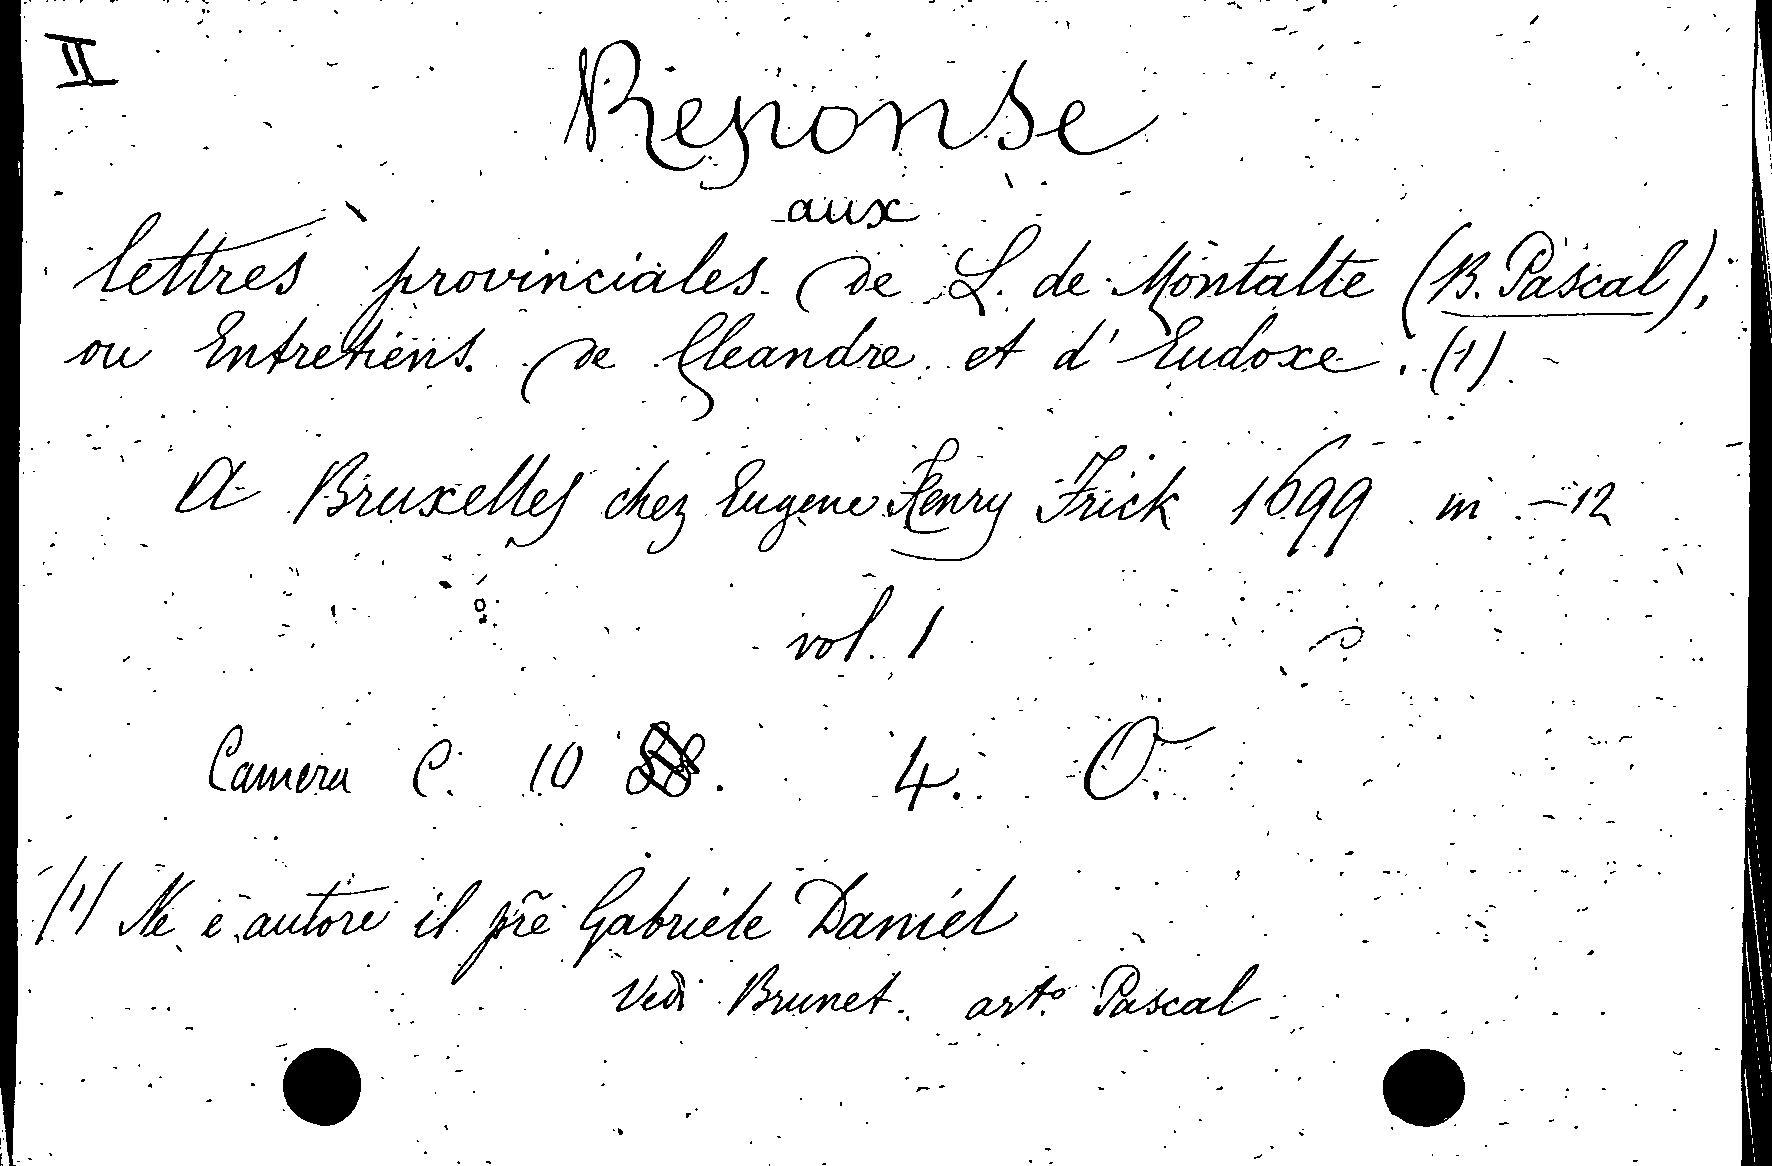 II
Reponse
aux
lettres provinciales de L. de Montalte (B. Pascal),
ou Entretiens de Cleandre et d' Eudoxe. (1)
A Bruxelles chez Eugene Henry Frick 1699 in - 12
vol. 1
Camera C. 10 . 4. O.
(1) Ne è autore il pr̃e Gabriele Daniel
Vedi Brunet. art.º Pascal